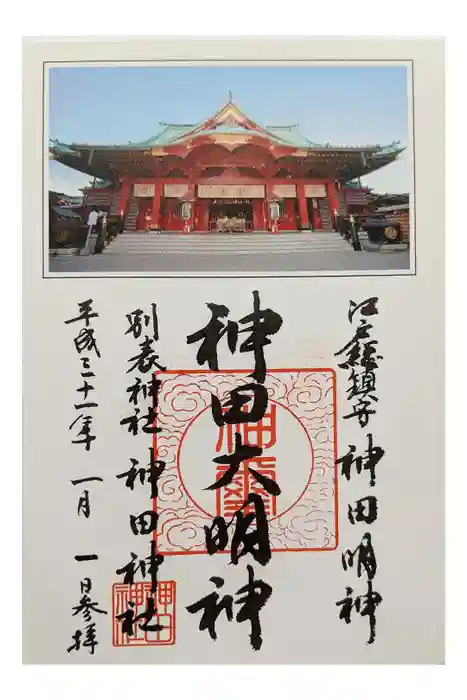 江戸総鎮守 神田明神
神田大明神
別表神社 神田神社
平成三十一年 一月 一日参拝
神田神社